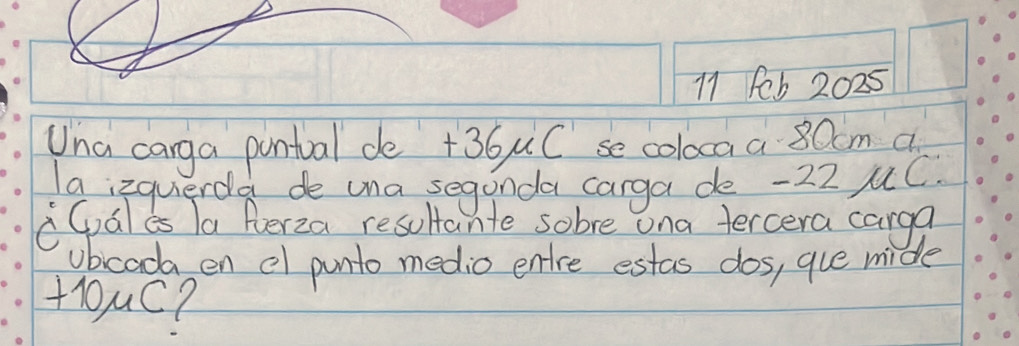 11 Feb 2025
Una carga puntual de +36μC se coloca a 80cm a
la izquierda de una segunda carga de -22 μC.
¿Cuál es la fuerza resultante sobre una tercera carga
ubicada en el punto medio entre estas dos, que mide
+10μC?